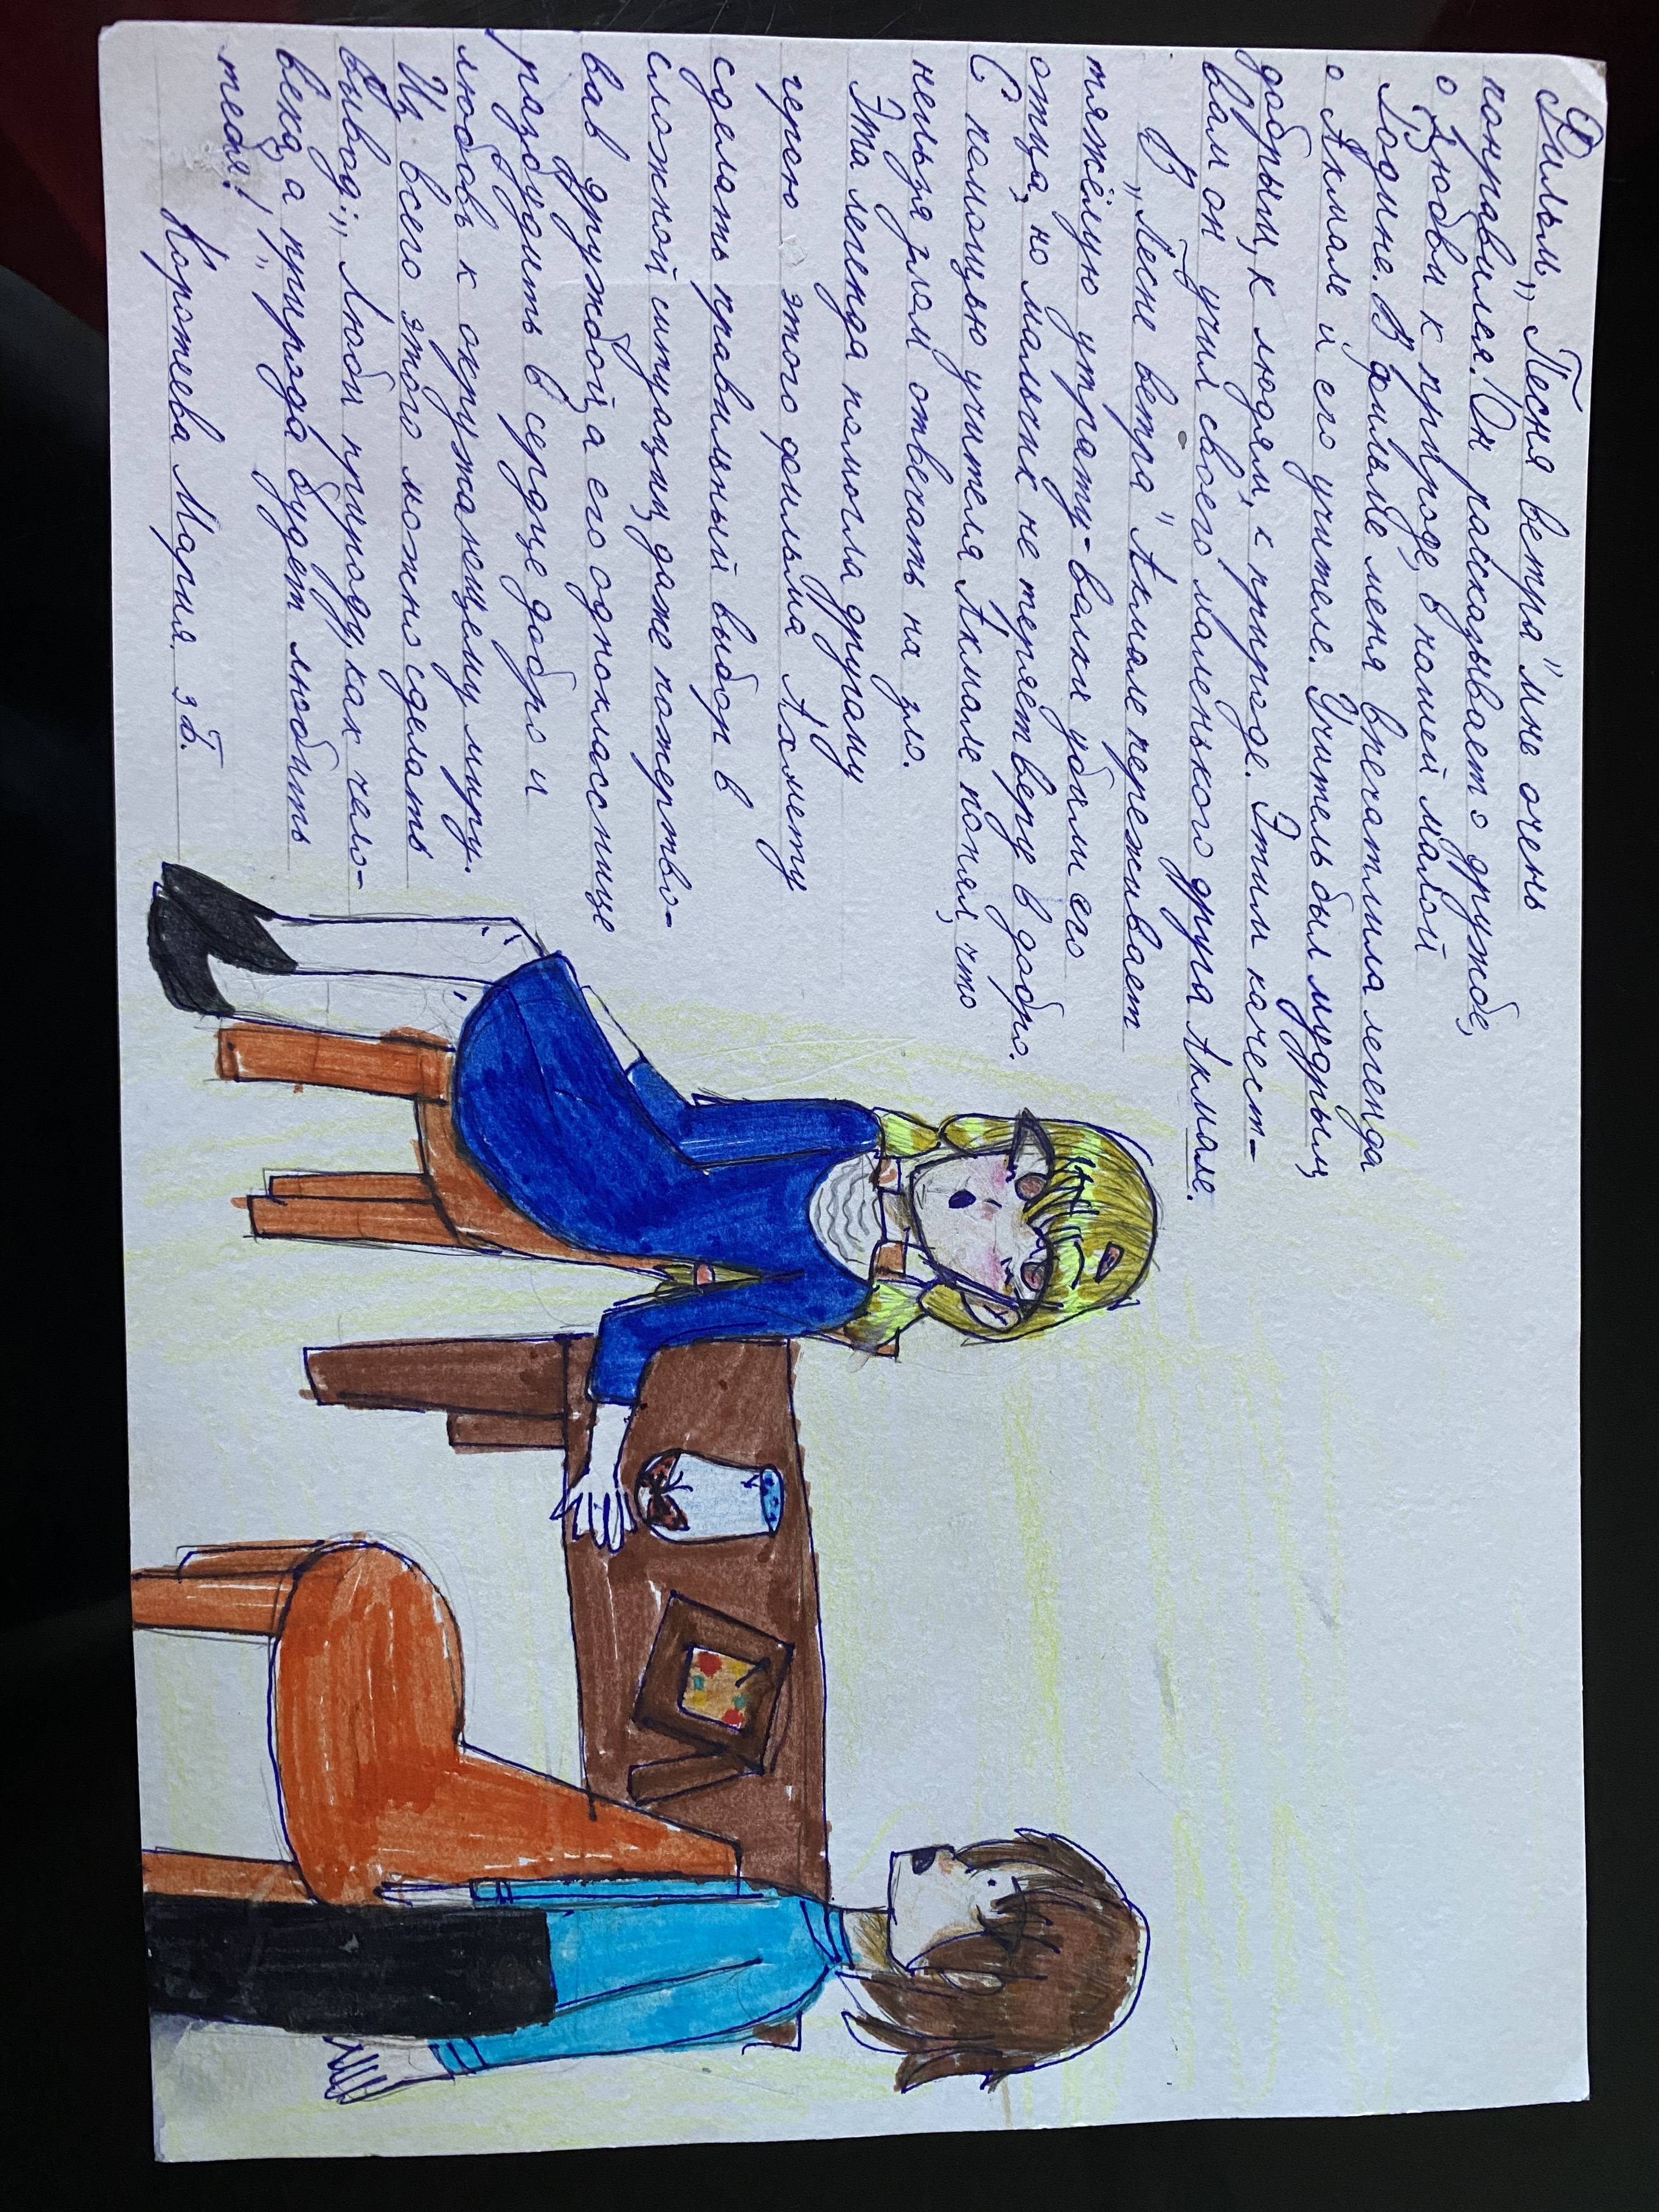 Фильм „Песня ветра" мне очень
понравился. Он рассказывает о дружбе,
о любви к природе, в нашей малой
Родине. В фильме меня впечатлила легенда
о Акмале и его учителе. Учитель был мудрым,
добрым, к людям, к природе. Этим качест-
вам он учил своего маленького друга Акмале.
В „Песне ветра" Акмале переживает
тяжёлую утрату - волки убили его
отца, но мальчик не теряет веру в добро.
С помощью учителя Акмале понял, что
нельзя злом отвечать на зло.
Эта легенда помогла другому
герою этого фильма Ахмету
сделать правильный выбор в
сложной ситуации, даже пожертво-
вав дружбой, а его однокласснице
разбудить в сердце добро и
любовь к окружающему миру.
Из всего этого можно сделать
вывод: „Люби природу, как чело-
века, а природа будет любить
тебя!"
Коротеева Мария 3 Б.